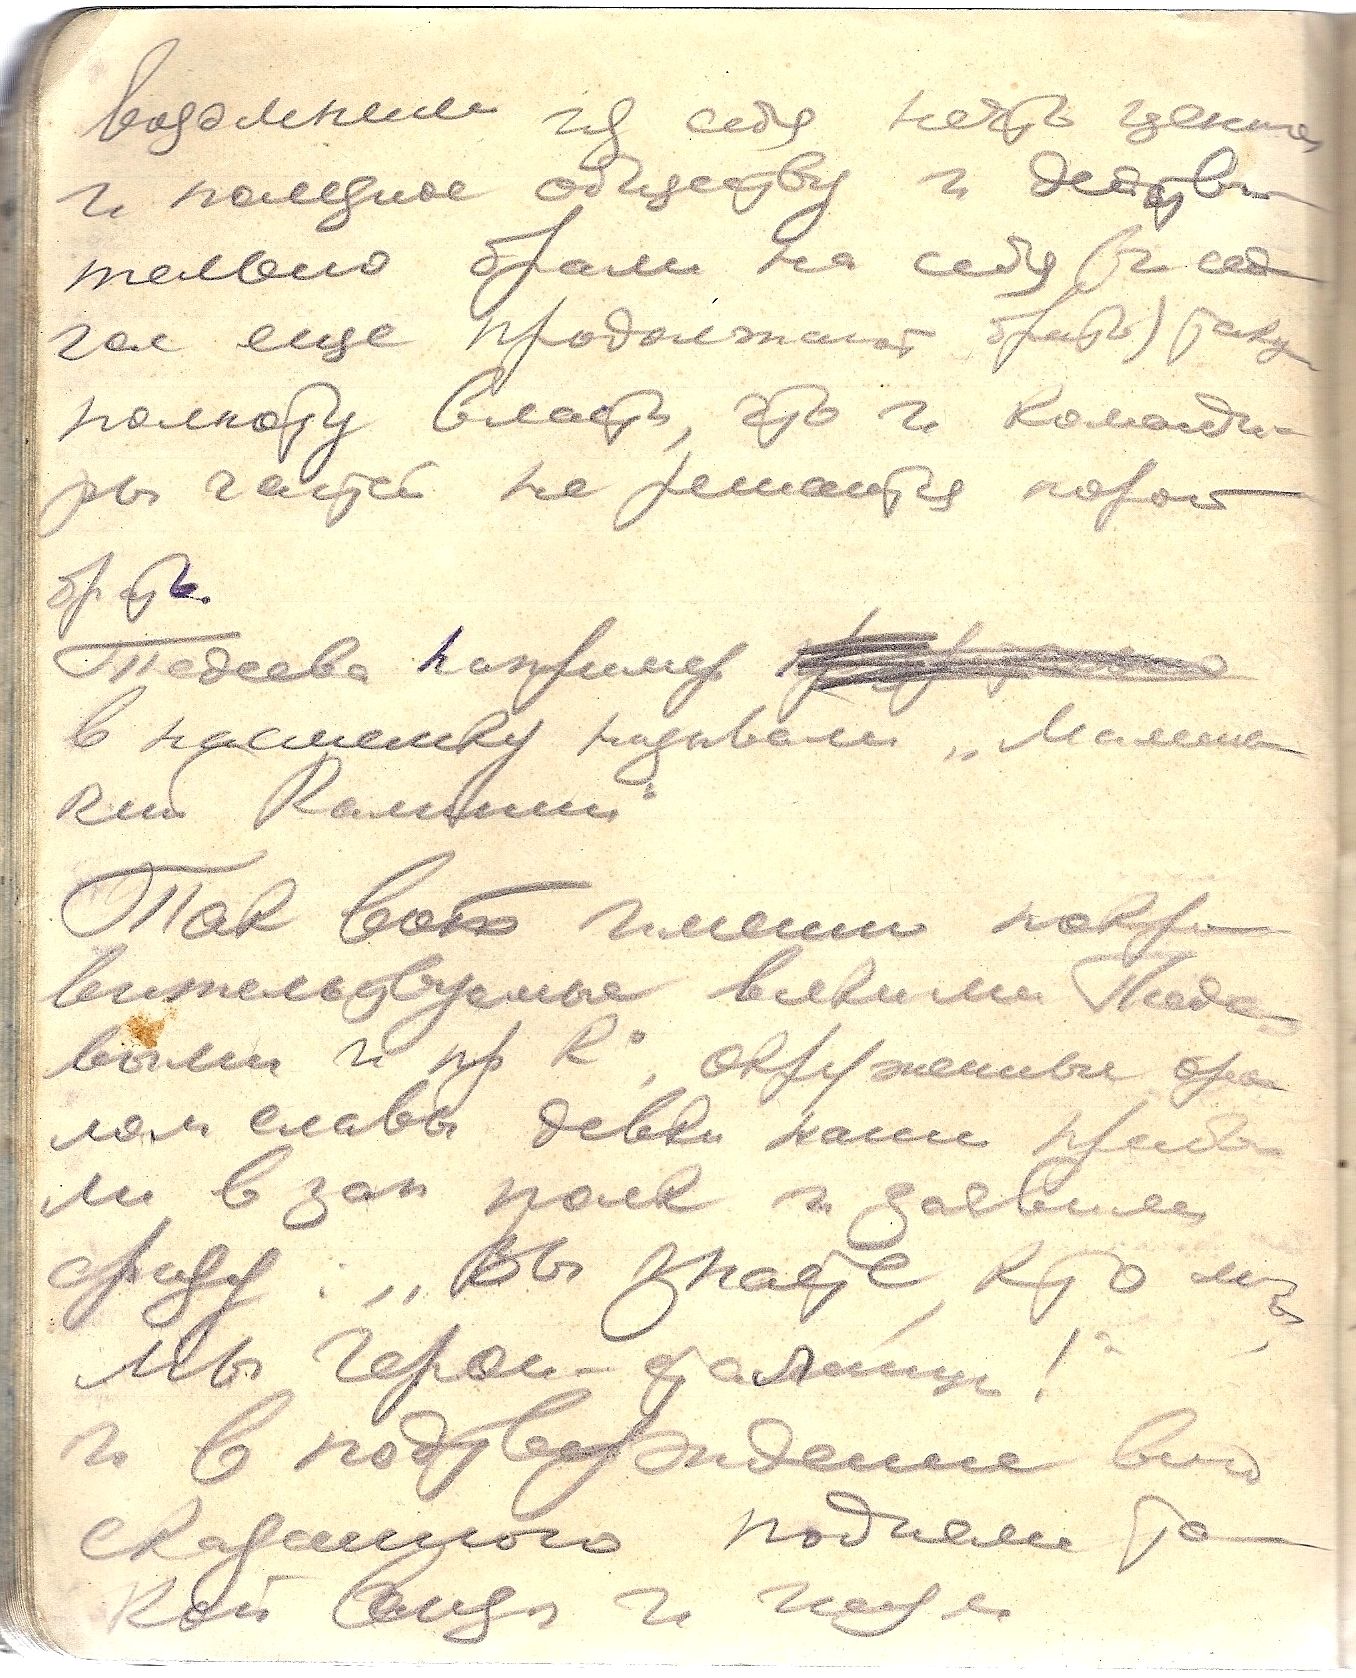 возомнили из себя нечто ценное
и полезное обществу и действи
тельно брали на себя (и сей
час еще продолжают брать) таку
полноту власти, что и команди
ры частей не решаются порой
брать.
Тадеева например
в насмешку называли „Малень
кий Калинин"
Так вот именно покро
вительствуемые всякими Таде
выми и пр К°, окруженные орео
лом славы девки наши прибы
ли в зап полк и заявили
сразу: „Вы знаете, кто мы,
мы герои-сталинцы!"
и в подтверждение выше
сказанного подняли та
кой визг и